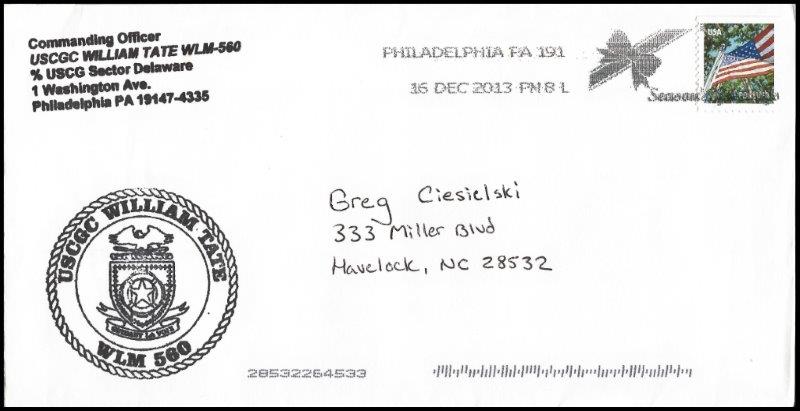 Commanding Officer
USCGC WILLIAM TATE WLM-560
% USCG Sector Delaware
1 Washington Ave.
Philadelphia PA 19147-4335
PHILADELPHIA PA 191
16 DEC 2013 PM 8 L
USA
Season's
Greg Ciesielski
333 Miller Blvd
Havelock, NC 28532
USCGC WILLIAM TATE
WLM 560
28532264533